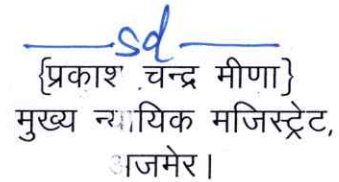 sd
{प्रकाश चन्द्र मीणा}
मुख्य न्यायिक मजिस्ट्रेट,
अजमेर।